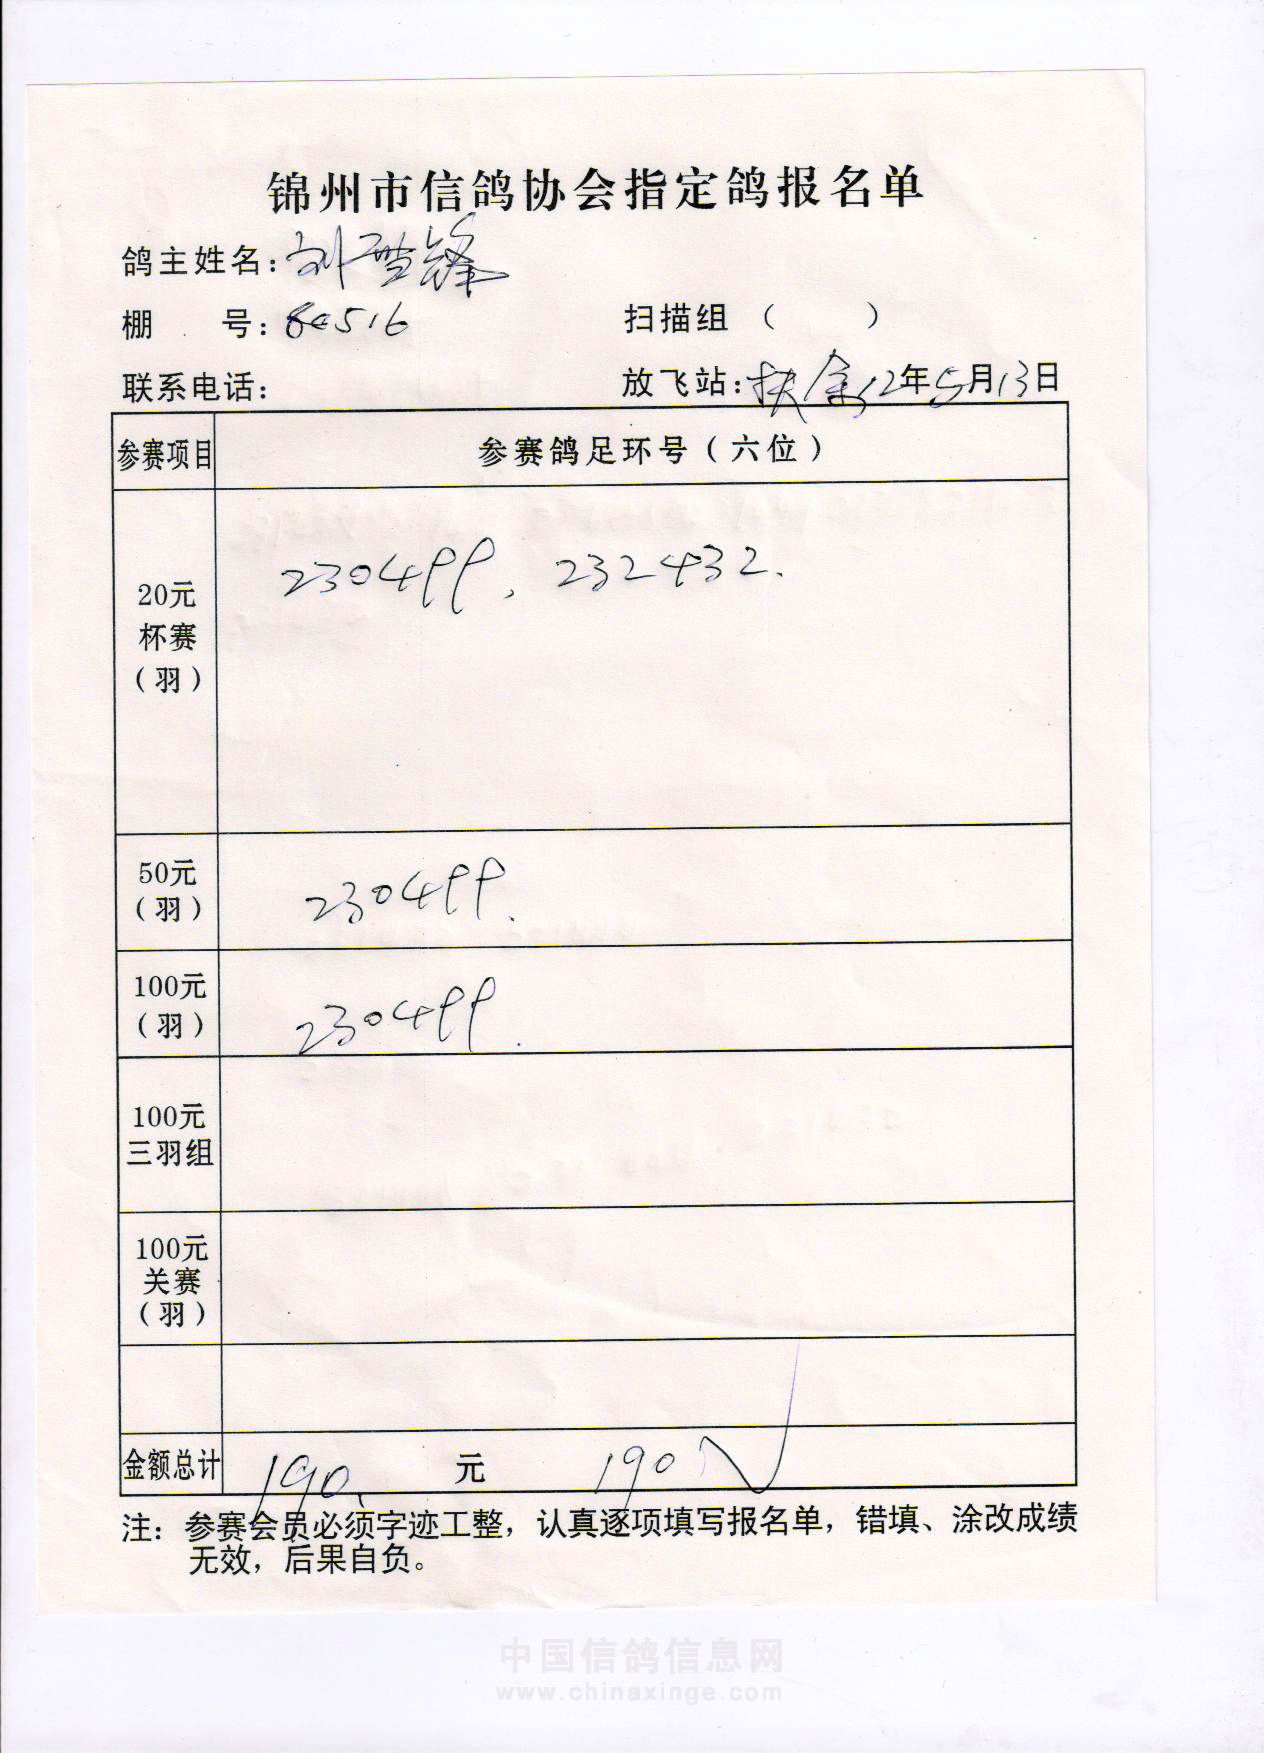 锦州市信鸽协会指定鸽报名单
鸽主姓名：刘 锋
棚 号：516 扫描组（ ）
联系电话： 放飞站：扶余 12年5月13日
参赛项目 参赛鸽足环号（六位）
20元
杯赛
（羽）
230499，232432.
50元
（羽）
230499.
100元
（羽）
230499.
100元
三羽组
100元
关赛
（羽）
金额总计 190. 元 190
注：参赛会员必须字迹工整，认真逐项填写报名单，错填、涂改成绩
无效，后果自负。
中国信鸽信息网
www.chinaxinge.com